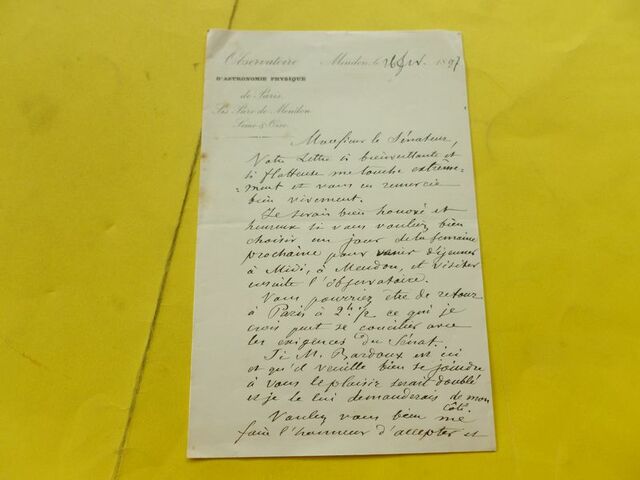 Observatoire
D'ASTRONOMIE PHYSIQUE
de Paris
Sis Parc de Meudon
Seine & Oise
Meudon, le 26 1897
Monsieur le Sénateur,
Votre Lettre si bienveillante et
si flatteuse me touche extrême-
-ment et vous en remercie
bien vivement.
Je serais bien honoré et
heureux si vous vouliez bien
choisir un jour de la semaine
prochaine pour venir déjeuner
à Midi, à Meudon, et visiter
ensuite l'observatoire.
Vous pourriez être de retour
à Paris à 2h 1/2 ce qui je
crois peut se concilier avec
les exigences du Sénat.
Si M. Bardoux est ici
et qu'il veuille bien se joindre
à vous le plaisir serait doublé
et je le lui demanderais de mon
côté.
Veuillez vous bien me
faire l'honneur d'accepter et